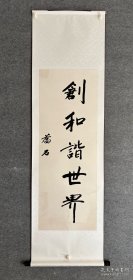 創和諧世界
喬石